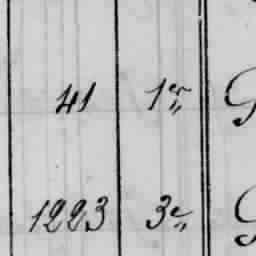 41 1er„
1223 3e„